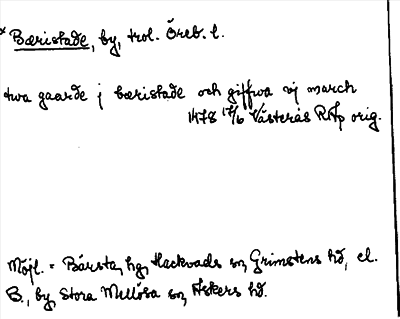 * Bæristade, by, trol. Öreb. l.
twa gaarde j bæristade och giffwa vj march
1478 17/6 Västerås RAp orig.
Möjl. = Bärsta, hg, Hackvads sn, Grimstens hd, el.
B., by, Stora Mellösa sn, Askers hd.